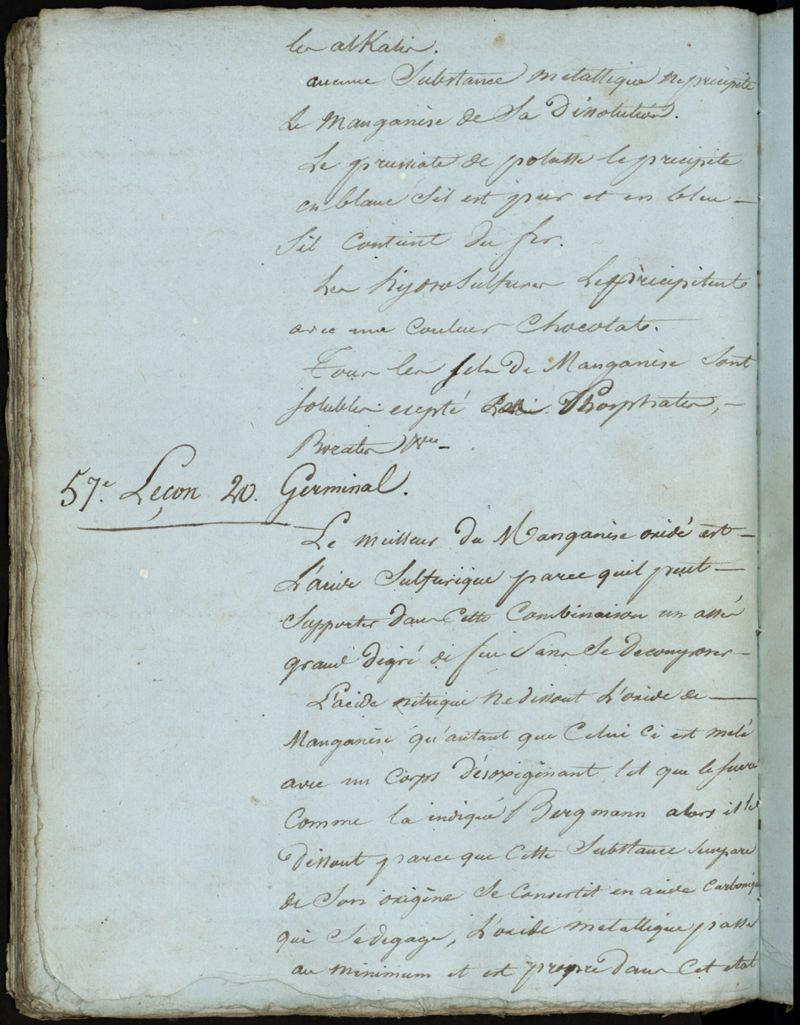 les alkalis.
aucune Substance métallique ne précipite
le Manganèse de Sa Dissolution.
Le prussiate de potasse le précipite
en blanc S'il est pur et en bleu —
S'il Contient du fer.
Les hydrosulfures le précipitent
avec une Couleur Chocolate.
Tous les sels De Manganèse Sont
solubles excepté les Phosphates, —
Borates
57e. Leçon 20. Germinal.
Le meilleur du Manganèse oxidé est —
L'acide Sulfurique parce quil peut —
Supporter dans Cette Combinaison un assés
grand dégré de feu Sans Se decomposer —
L'acide nitrique ne dissout L'oxide de —
Manganèse qu'autant que Celui Ci est mêlé
avec un Corps désoxigénant tel que le sucre
Comme la indiqué Bergmann alors il le
Dissout parce que Cette Substance S'empare
de Son oxigène Se Convertit en acide Carbonique
qui Se dégage, L'oxide métallique passe
au minimum et est propre dans Cet etat